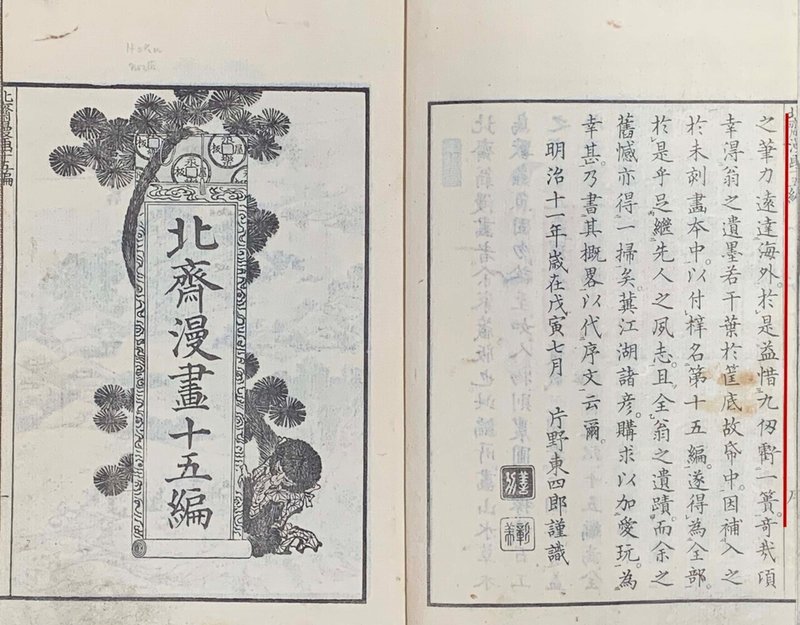 之筆力遠達海外。於是益惜九仭虧一簣。奇哉頃
幸得翁之遺墨若干葉於筐底故帋中。因補入之
於未刻畫本中。以付梓名第十五編。遂得為全部。
於是乎足繼先人之夙志。且全翁之遺蹟。而余之
舊憾亦得一掃矣。冀江湖諸彦。購求以加愛玩。為
幸甚。乃書其概畧以代序文云爾。
明治十一年歳在戊寅七月　片野東四郎謹識
北齋漫畫十五編
Hoku
北齋漫畫十五編